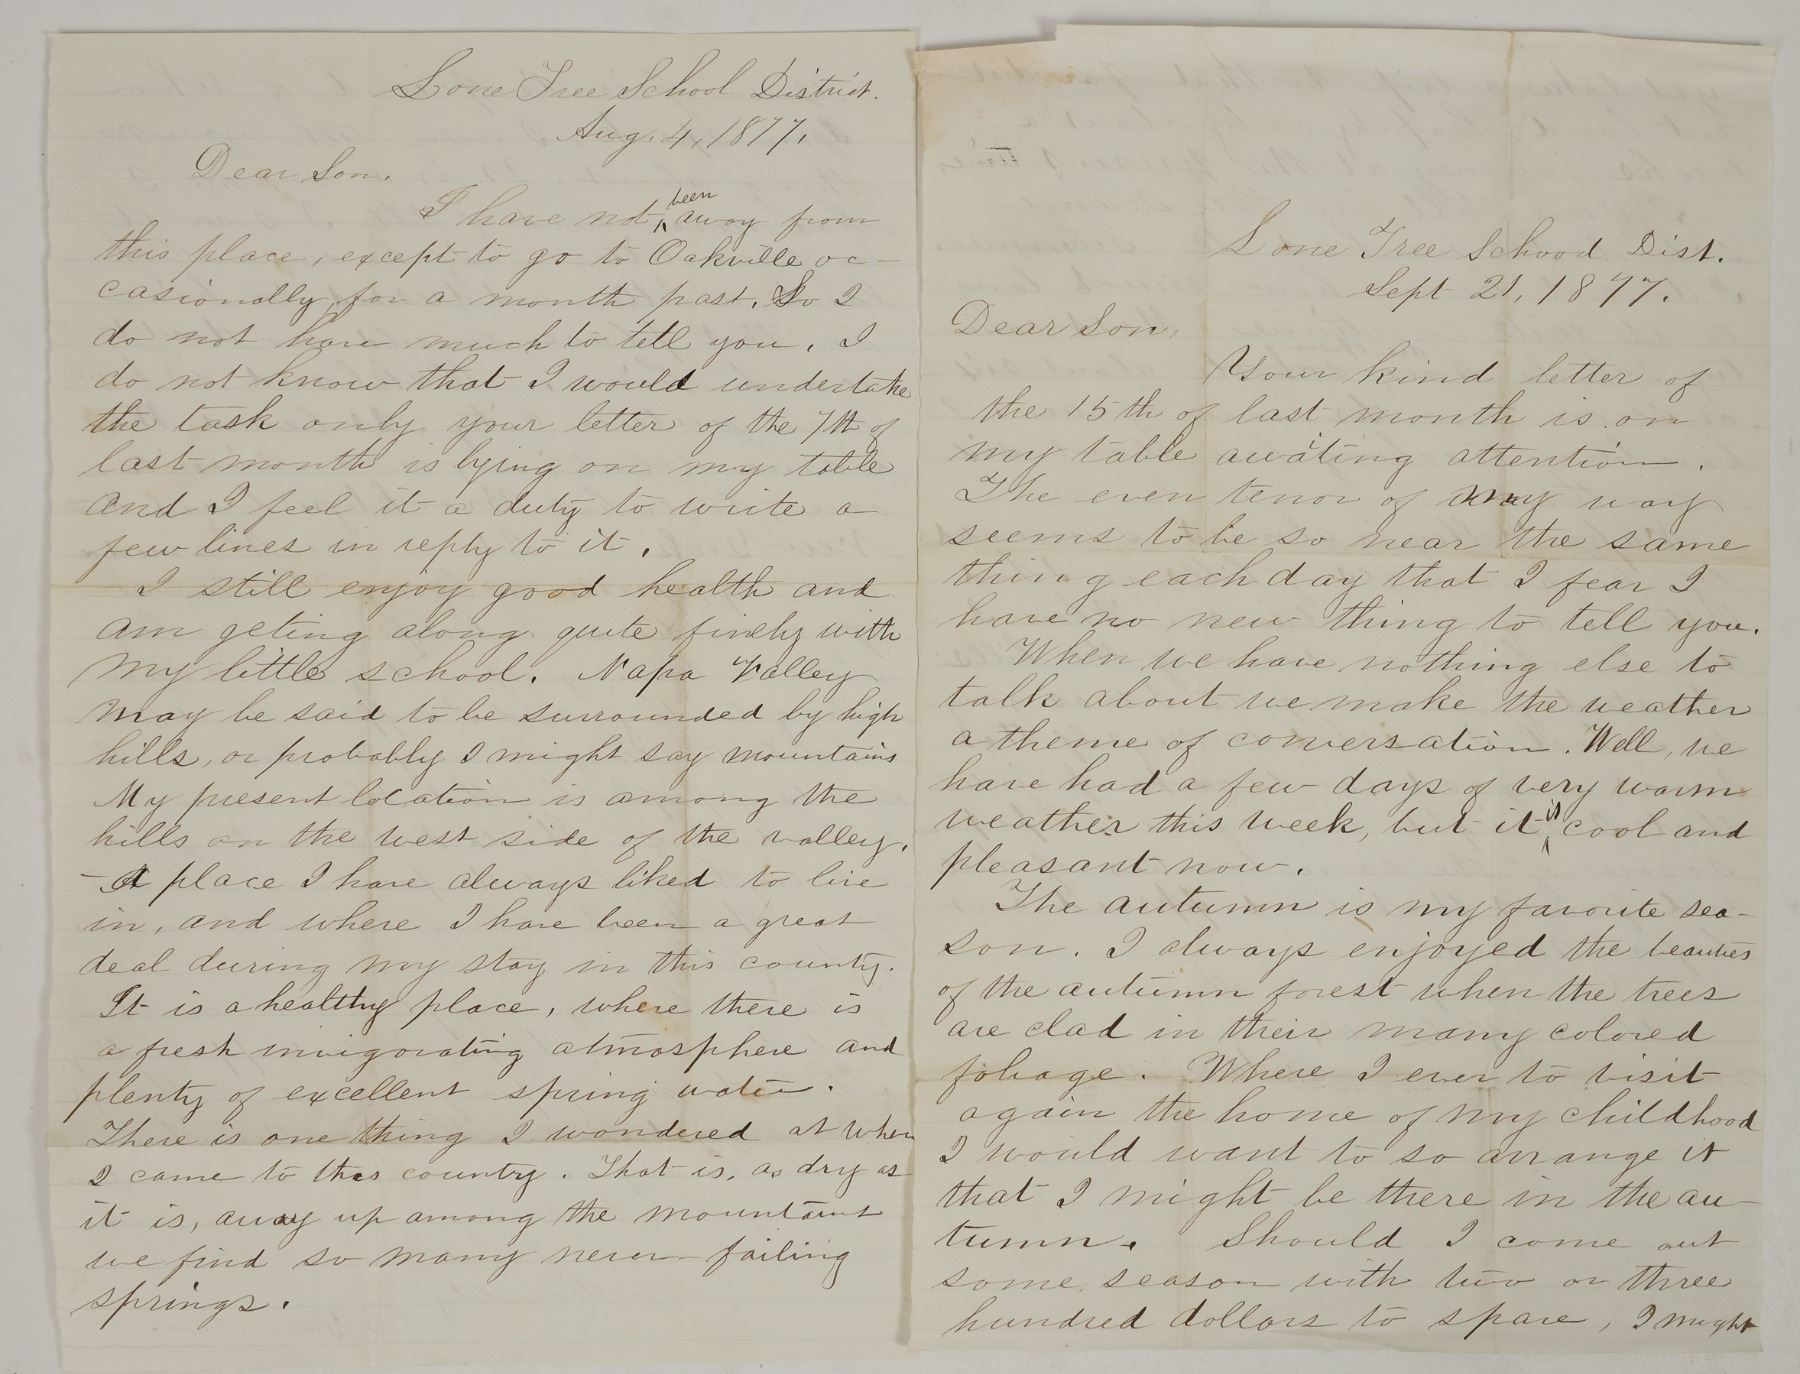 Lone Tree School District.
Aug. 4, 1877.
Dear Son.
I have not been away from
this place, except to go to Oakville oc-
casionally for a month past. So I
do not have much to tell you. I
do not know that I would undertake
the task only your letter of the 7th of
last month is lying on my table
and I feel it a duty to write a
few lines in reply to it.
I still enjoy good health and
am geting along quite finely with
my little school. Napa Valley
may be said to be surrounded by high
hills, or probably I might say mountains
My present location is among the
hills on the west side of the valley.
A place I have always liked to live
in, and where I have been a great
deal during my stay in this county.
It is a healthy place, where there is
a fresh invigorating atmosphere and
plenty of excellent spring water.
There is one thing I wondered at when
I came to this country. That is, as dry as
it is, away up among the mountains
we find so many never-failing
springs.
Lone Tree School Dist.
Sept 21, 1877.
Dear Son,
Your kind letter of
the 15th of last month is on
my table awaiting attention.
The even tenor of my way
seems to be so near the same
thing each day that I fear I
have no new thing to tell you.
When we have nothing else to
talk about we make the weather
a theme of conversation. Well, we
have had a few days of very warm
weather this week, but it is cool and
pleasant now.
The autumn is my favorite sea-
son. I always enjoyed the beauties
of the autumn forest when the trees
are clad in their many colored
foliage. Where I ever to visit
again the home of my childhood
I would want to so arrange it
that I might be there in the au-
tumn. Should I come out
some season with two or three
hundred dollars to spare, I might